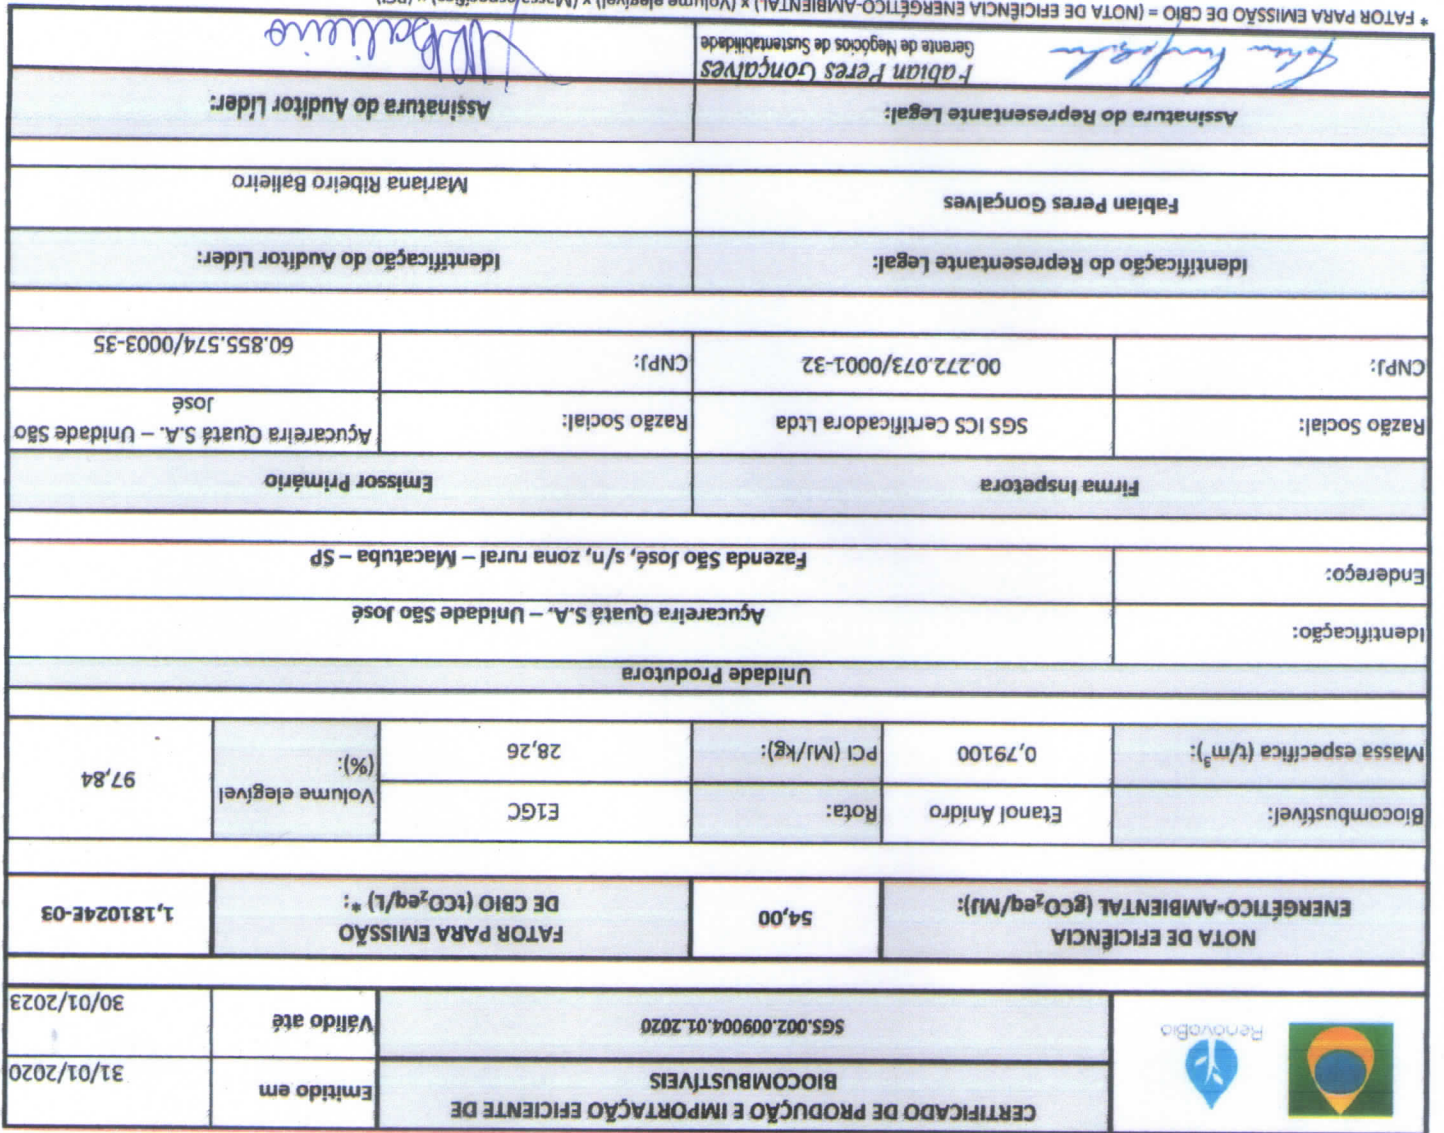 CERTIFICADO DE PRODUÇÃO E IMPORTAÇÃO EFICIENTE DE
BIOCOMBUSTÍVEIS
Emitido em
31/01/2020
RenovaBio
SGS.002.009004.01.2020
Válido até
30/01/2023
NOTA DE EFICIÊNCIA
ENERGÉTICO-AMBIENTAL (gCO₂eq/MJ):
54,00
FATOR PARA EMISSÃO
DE CBIO (tCO₂eq/L) *:
1,181024E-03
Biocombustível:
Etanol Anidro
Rota:
E1GC
Volume elegível
(%):
97,84
Massa específica (t/m³):
0,79100
PCI (MJ/kg):
28,26
Unidade Produtora
Identificação:
Açucareira Quatá S.A. – Unidade São José
Endereço:
Fazenda São José, s/n, zona rural – Macatuba – SP
Firma Inspetora
Emissor Primário
Razão Social:
SGS ICS Certificadora Ltda
Razão Social:
Açucareira Quatá S.A. – Unidade São
José
CNPJ:
00.272.073/0001-32
CNPJ:
60.855.574/0003-35
Identificação do Representante Legal:
Identificação do Auditor Líder:
Fabian Peres Gonçalves
Mariana Ribeiro Balieiro
Assinatura do Representante Legal:
Assinatura do Auditor Líder:
Fabian Peres Gonçalves
Gerente de Negócios de Sustentabilidade
MRBalieiro
* FATOR PARA EMISSÃO DE CBIO = (NOTA DE EFICIÊNCIA ENERGÉTICO-AMBIENTAL) x (Volume elegível) x (Massa específica) x (PCI)